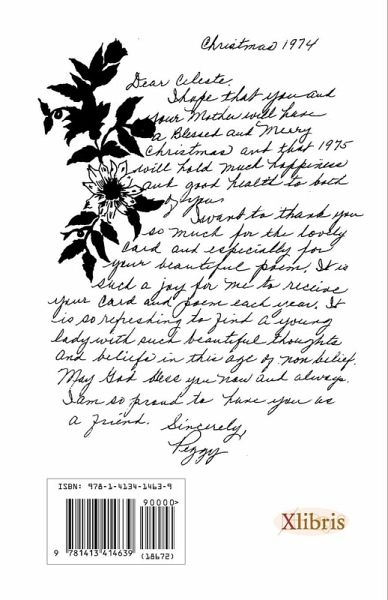 Christmas 1974
Dear Celeste,
I hope that you and
your Mother will have
a Blessed and Merry
Christmas and that 1975
will hold much happiness
and good health to both
of you.
I want to thank you
so much for the lovely
card and especially for
your beautiful poem. It is
such a joy for me to receive
your card and poem each year. It
is so refreshing to find a young
lady with such beautiful thoughts
and beliefs in this age of non belief.
May God bless you now and always.
I am so proud to have you as
a friend. Sincerely,
Peggy
ISBN: 978-1-4134-1463-9
90000>
9 781413 414639
(18672)
Xlibris